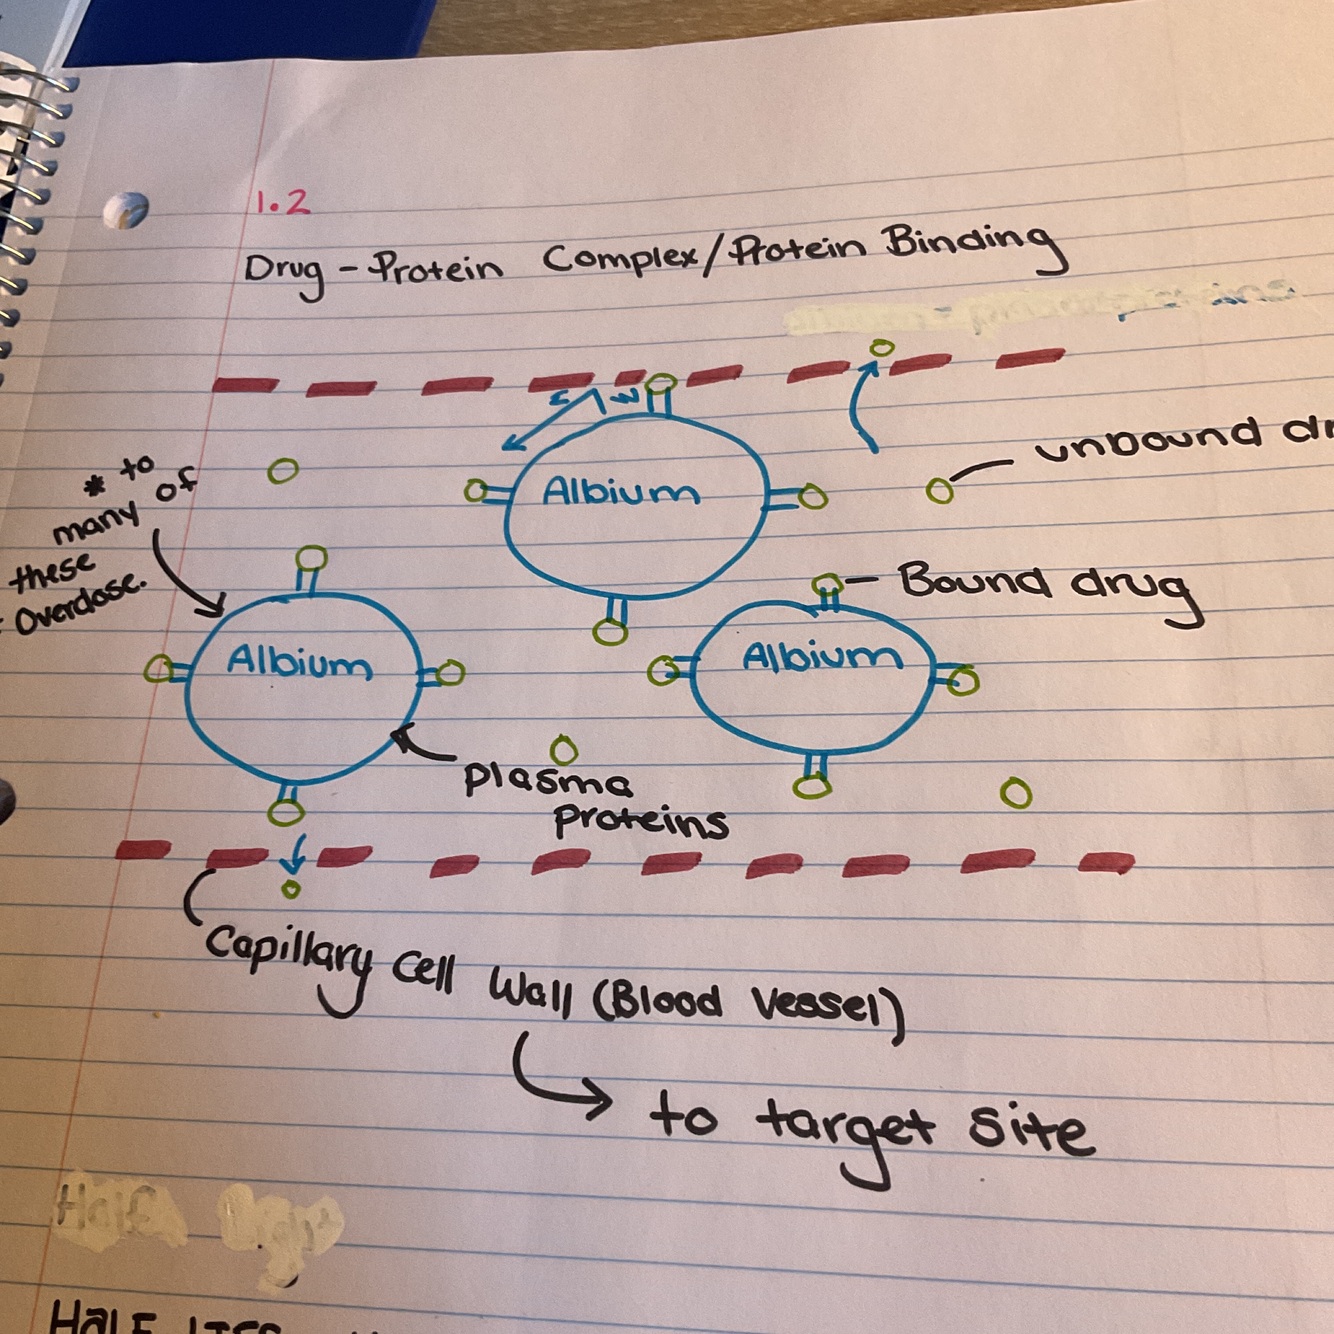 1.2
Drug - Protein Complex/Protein Binding
unbound
* to
many of
these
Overdose.
Albium
Bound drug
Albium
Albium
plasma
proteins
Capillary Cell Wall (Blood Vessel)
to target site
Half
HALF